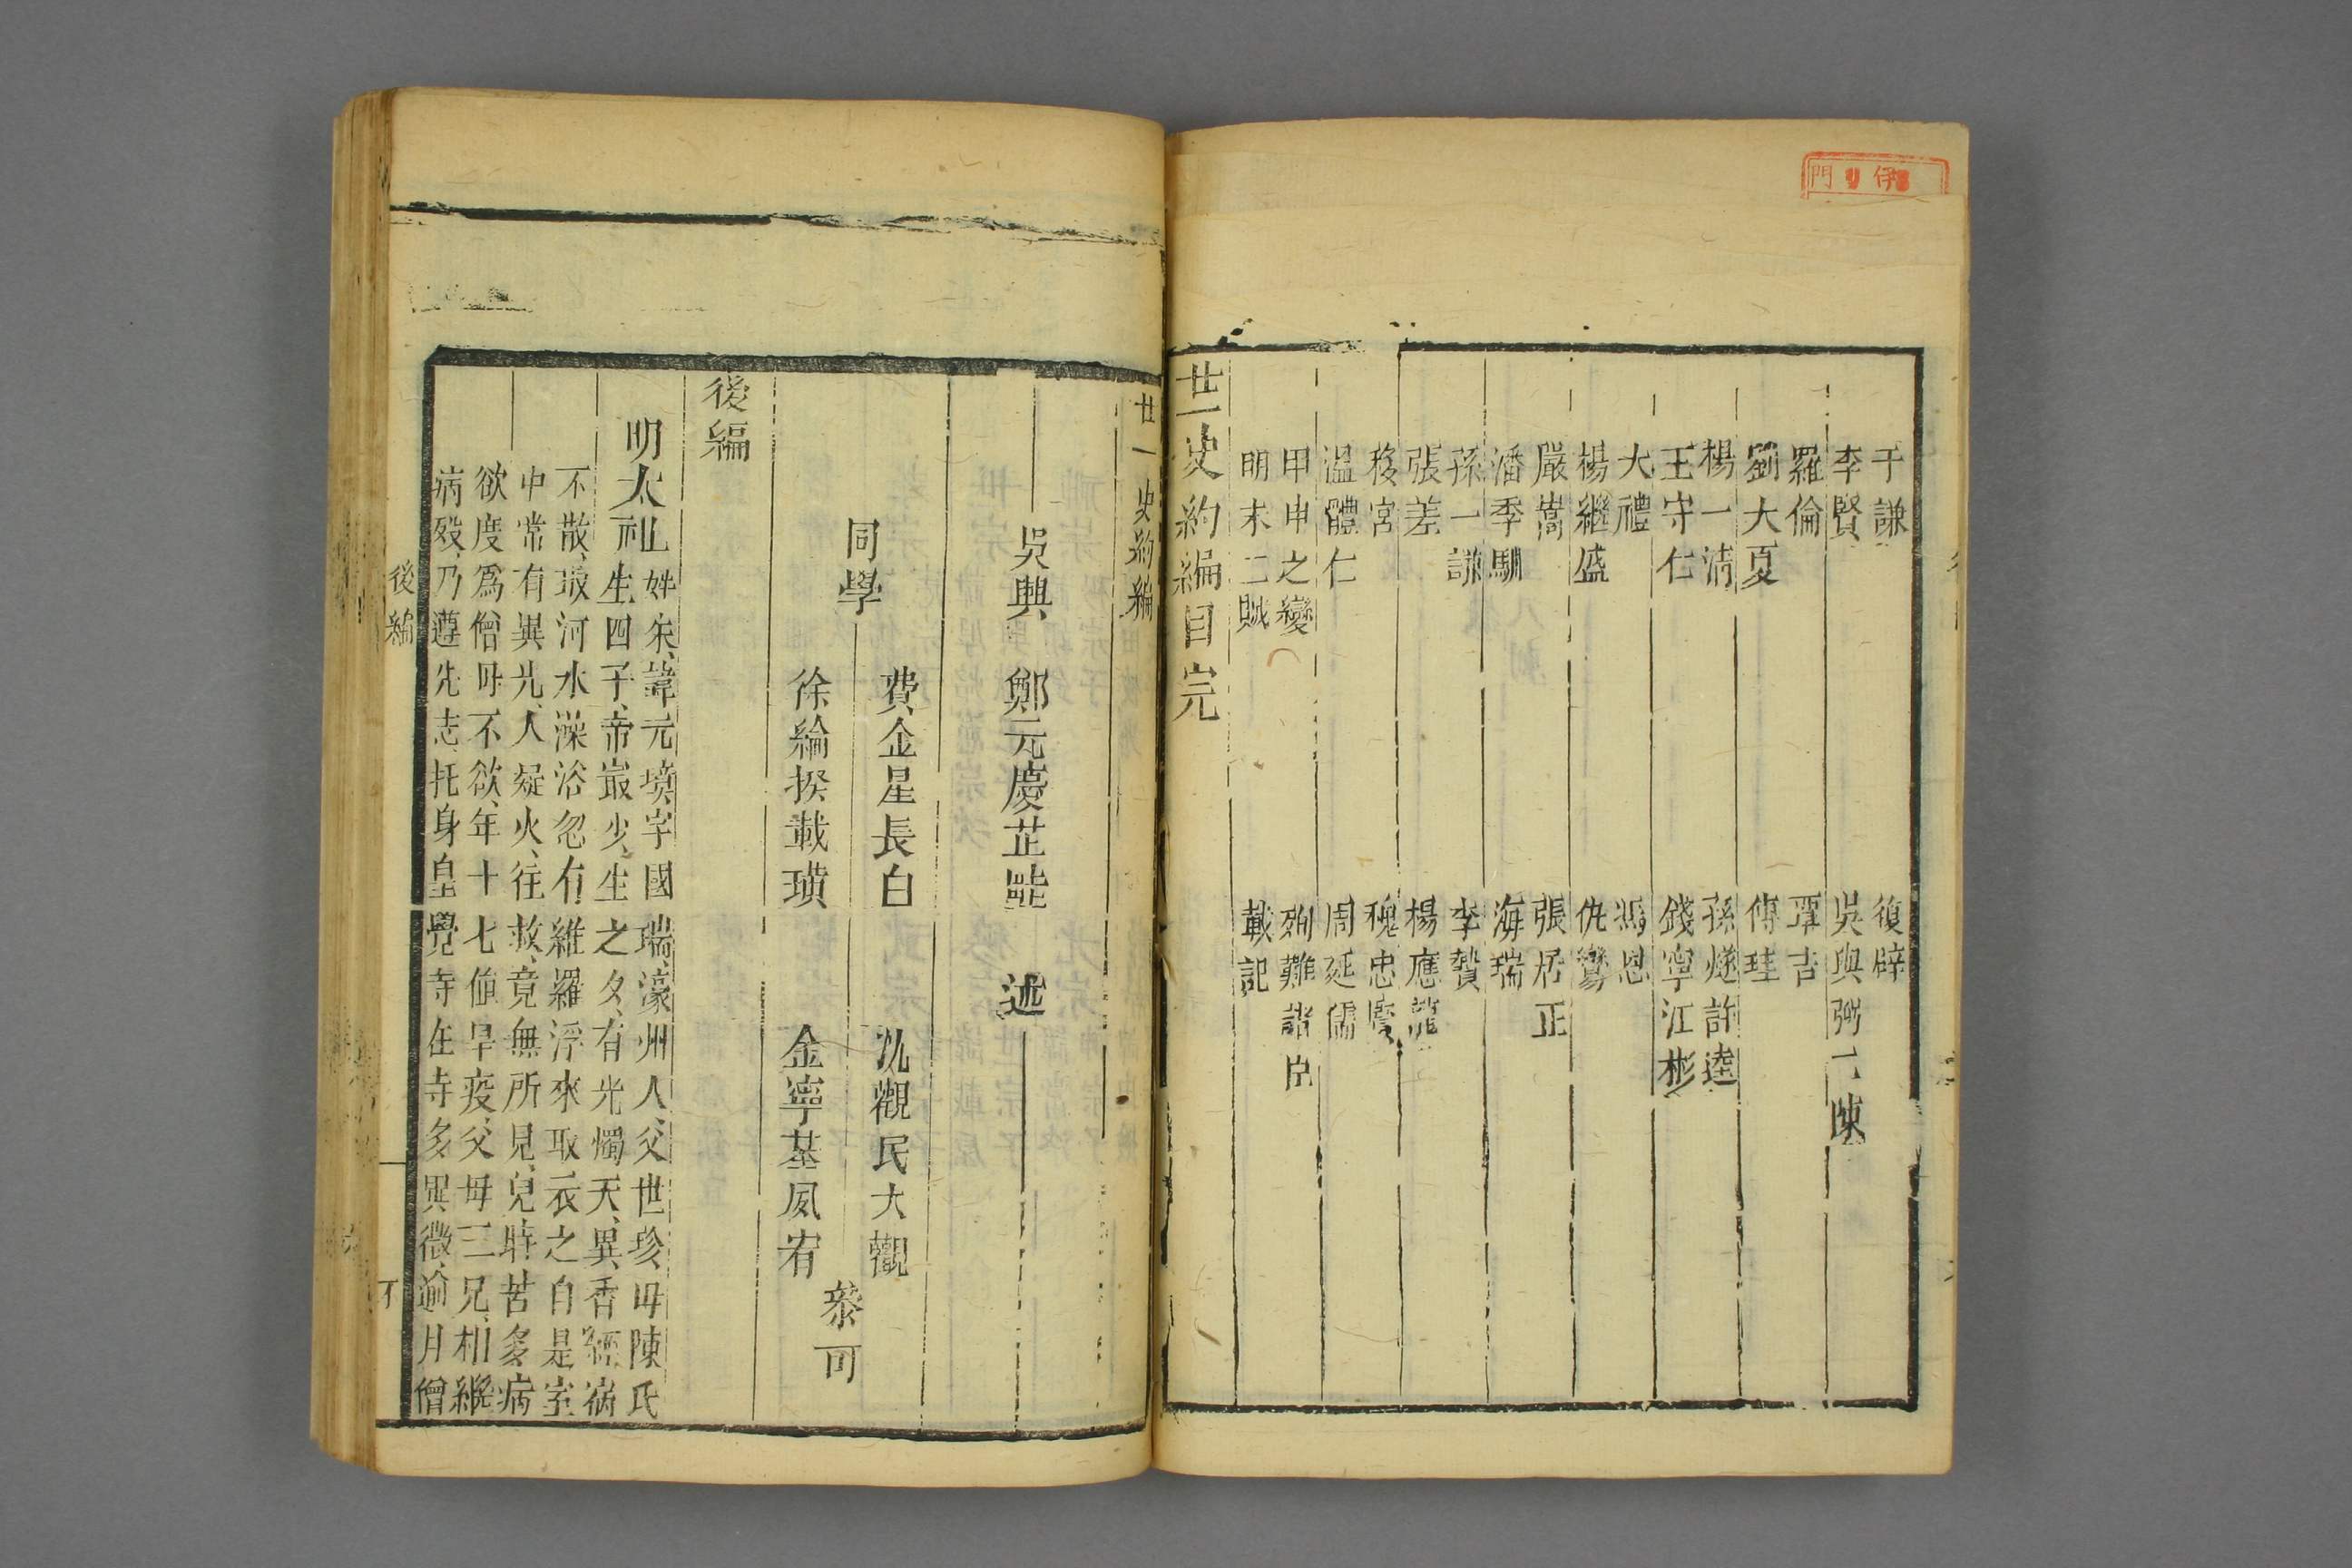 于謙
復辟
李賢
吳與弼二陳
羅倫
覃吉
劉大夏
傅珪
楊一清
孫燧許逵
王守仁
錢寧江彬
大禮
馮恩
楊繼盛
仇鸞
嚴嵩
張居正
潘季馴
海瑞
孫一謙
李贄
張差
楊應龍
移宮
魏忠賢
溫體仁
周延儒
甲申之變
殉難諸臣
明末二賊
載記
廿一史約編目完
廿一史約編
吳興 鄭元慶芷畦 述
同學
費金星長白 沈觀民大觀
徐綸揆載璜 金寧基夙宥
叅可
後編
明太祖
姓朱諱元璝字國瑞濠州人父世珍毋陳氏
生四子帝最少生之夕有光燭天異香經宿
不散取河水澡浴忽有維羅浮來取衣之自是室
中常有異光人疑火往救竟無所見兒時苦多病
欲度爲僧毋不欲年十七値旱疫父母三兄相繼
病歿乃遵先志托身皇覺寺在寺多異徵逾月僧
後編